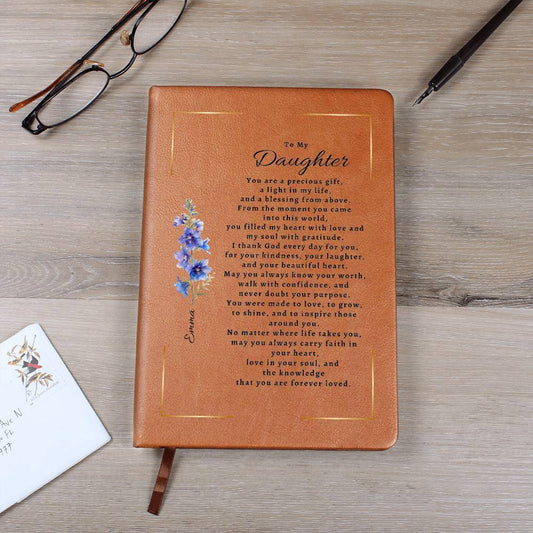 To My
Daughter
You are a precious gift,
a light in my life,
and a blessing from above.
From the moment you came
into this world,
you filled my heart with love and
my soul with gratitude.
I thank God every day for you,
for your kindness, your laughter,
and your beautiful heart.
May you always know your worth,
walk with confidence, and
never doubt your purpose.
You were made to love, to grow,
to shine, and to inspire those
around you.
No matter where life takes you,
may you always carry faith in
your heart,
love in your soul, and
the knowledge
that you are forever loved.
Emma
Ave N
FL